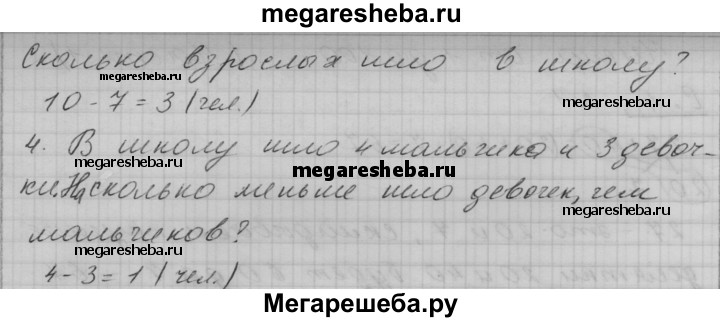 megaresheba.ru
Сколько взрослых шло в школу?
megaresheba.ru
megaresheba.ru
10 - 7 = 3 (чел.)
megaresheba.ru
4. В школу шло 4 мальчика и 3 девоч-
megaresheba.ru
ки. На сколько меньше шло девочек, чем
megaresheba.ru
мальчиков?
megaresheba.ru
megaresheba.ru
4 - 3 = 1 (чел.)
Мегарешеба.ру